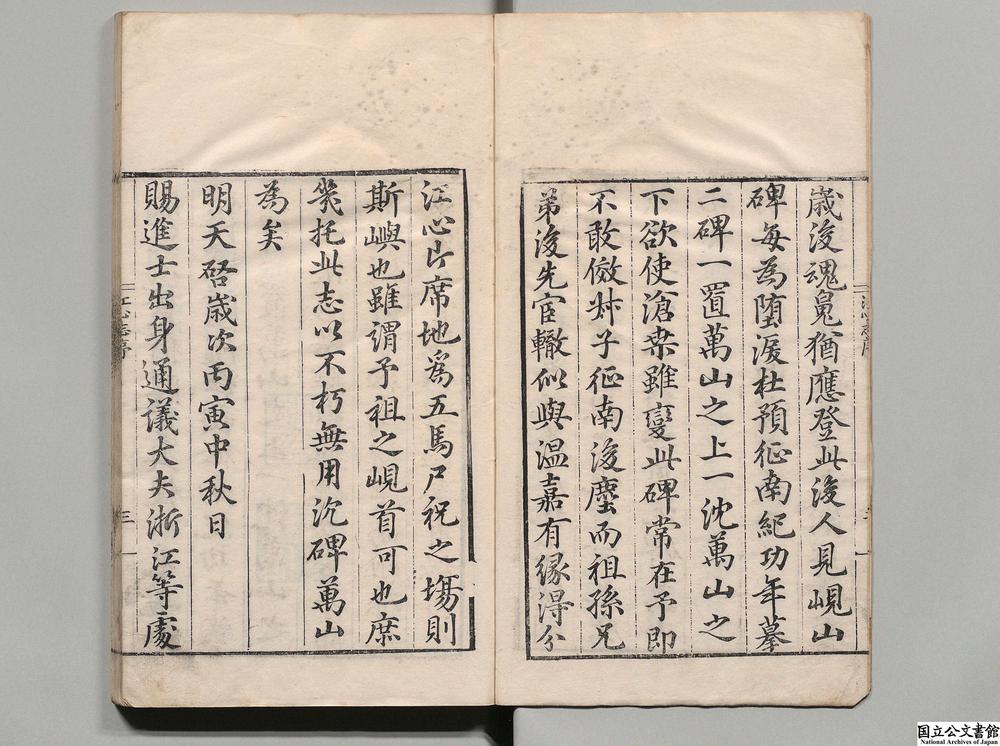 歲後魂鬼猶應登此後人見峴山
碑每為墮淚杜預征南紀功年摹
二碑一置萬山之上一沈萬山之
下欲使滄桒雖變此碑常在予即
不敢儌牂子征南後塵而祖孫兄
弟後先宦轍似與溫嘉有緣得分
江心片席地為五馬尸祝之塲則
斯嶼也雖謂予祖之峴首可也庶
幾托此志以不朽無用沉碑萬山
為矣
明天啓歲次丙寅中秋日
賜進士出身通議大夫浙江等處
江心志序
三
国立公文書館
National Archives of Japan